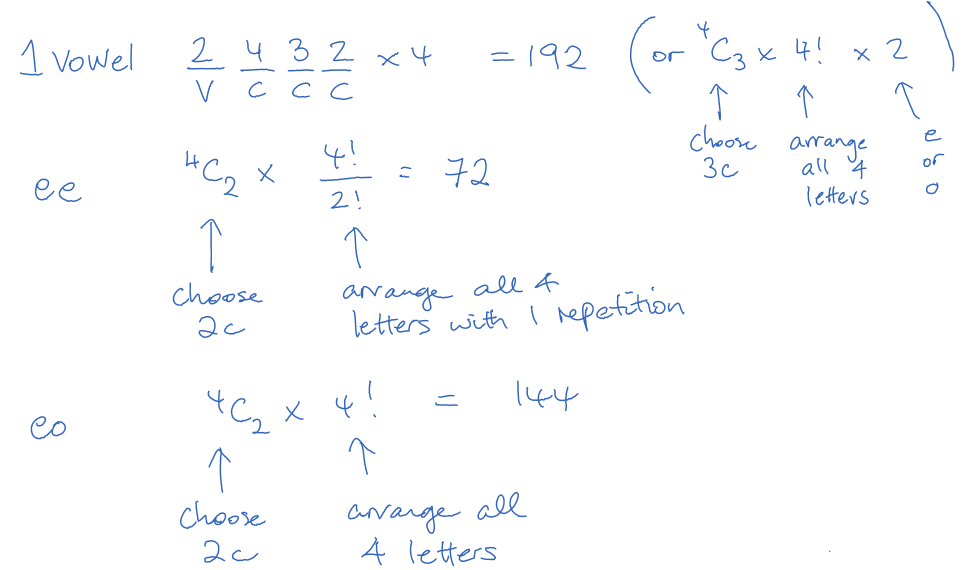 1 Vowel 2/V 4/C 3/C 2/C × 4 = 192 (or ⁴C₃ × 4! × 2)
↑ ↑ ↑
choose 3c
arrange all 4 letters
e or o
ee ⁴C₂ × 4!/2! = 72
↑ ↑
choose 2c
arrange all 4
letters with 1 repetition
eo ⁴C₂ × 4! = 144
↑ ↑
choose 2c
arrange all
4 letters